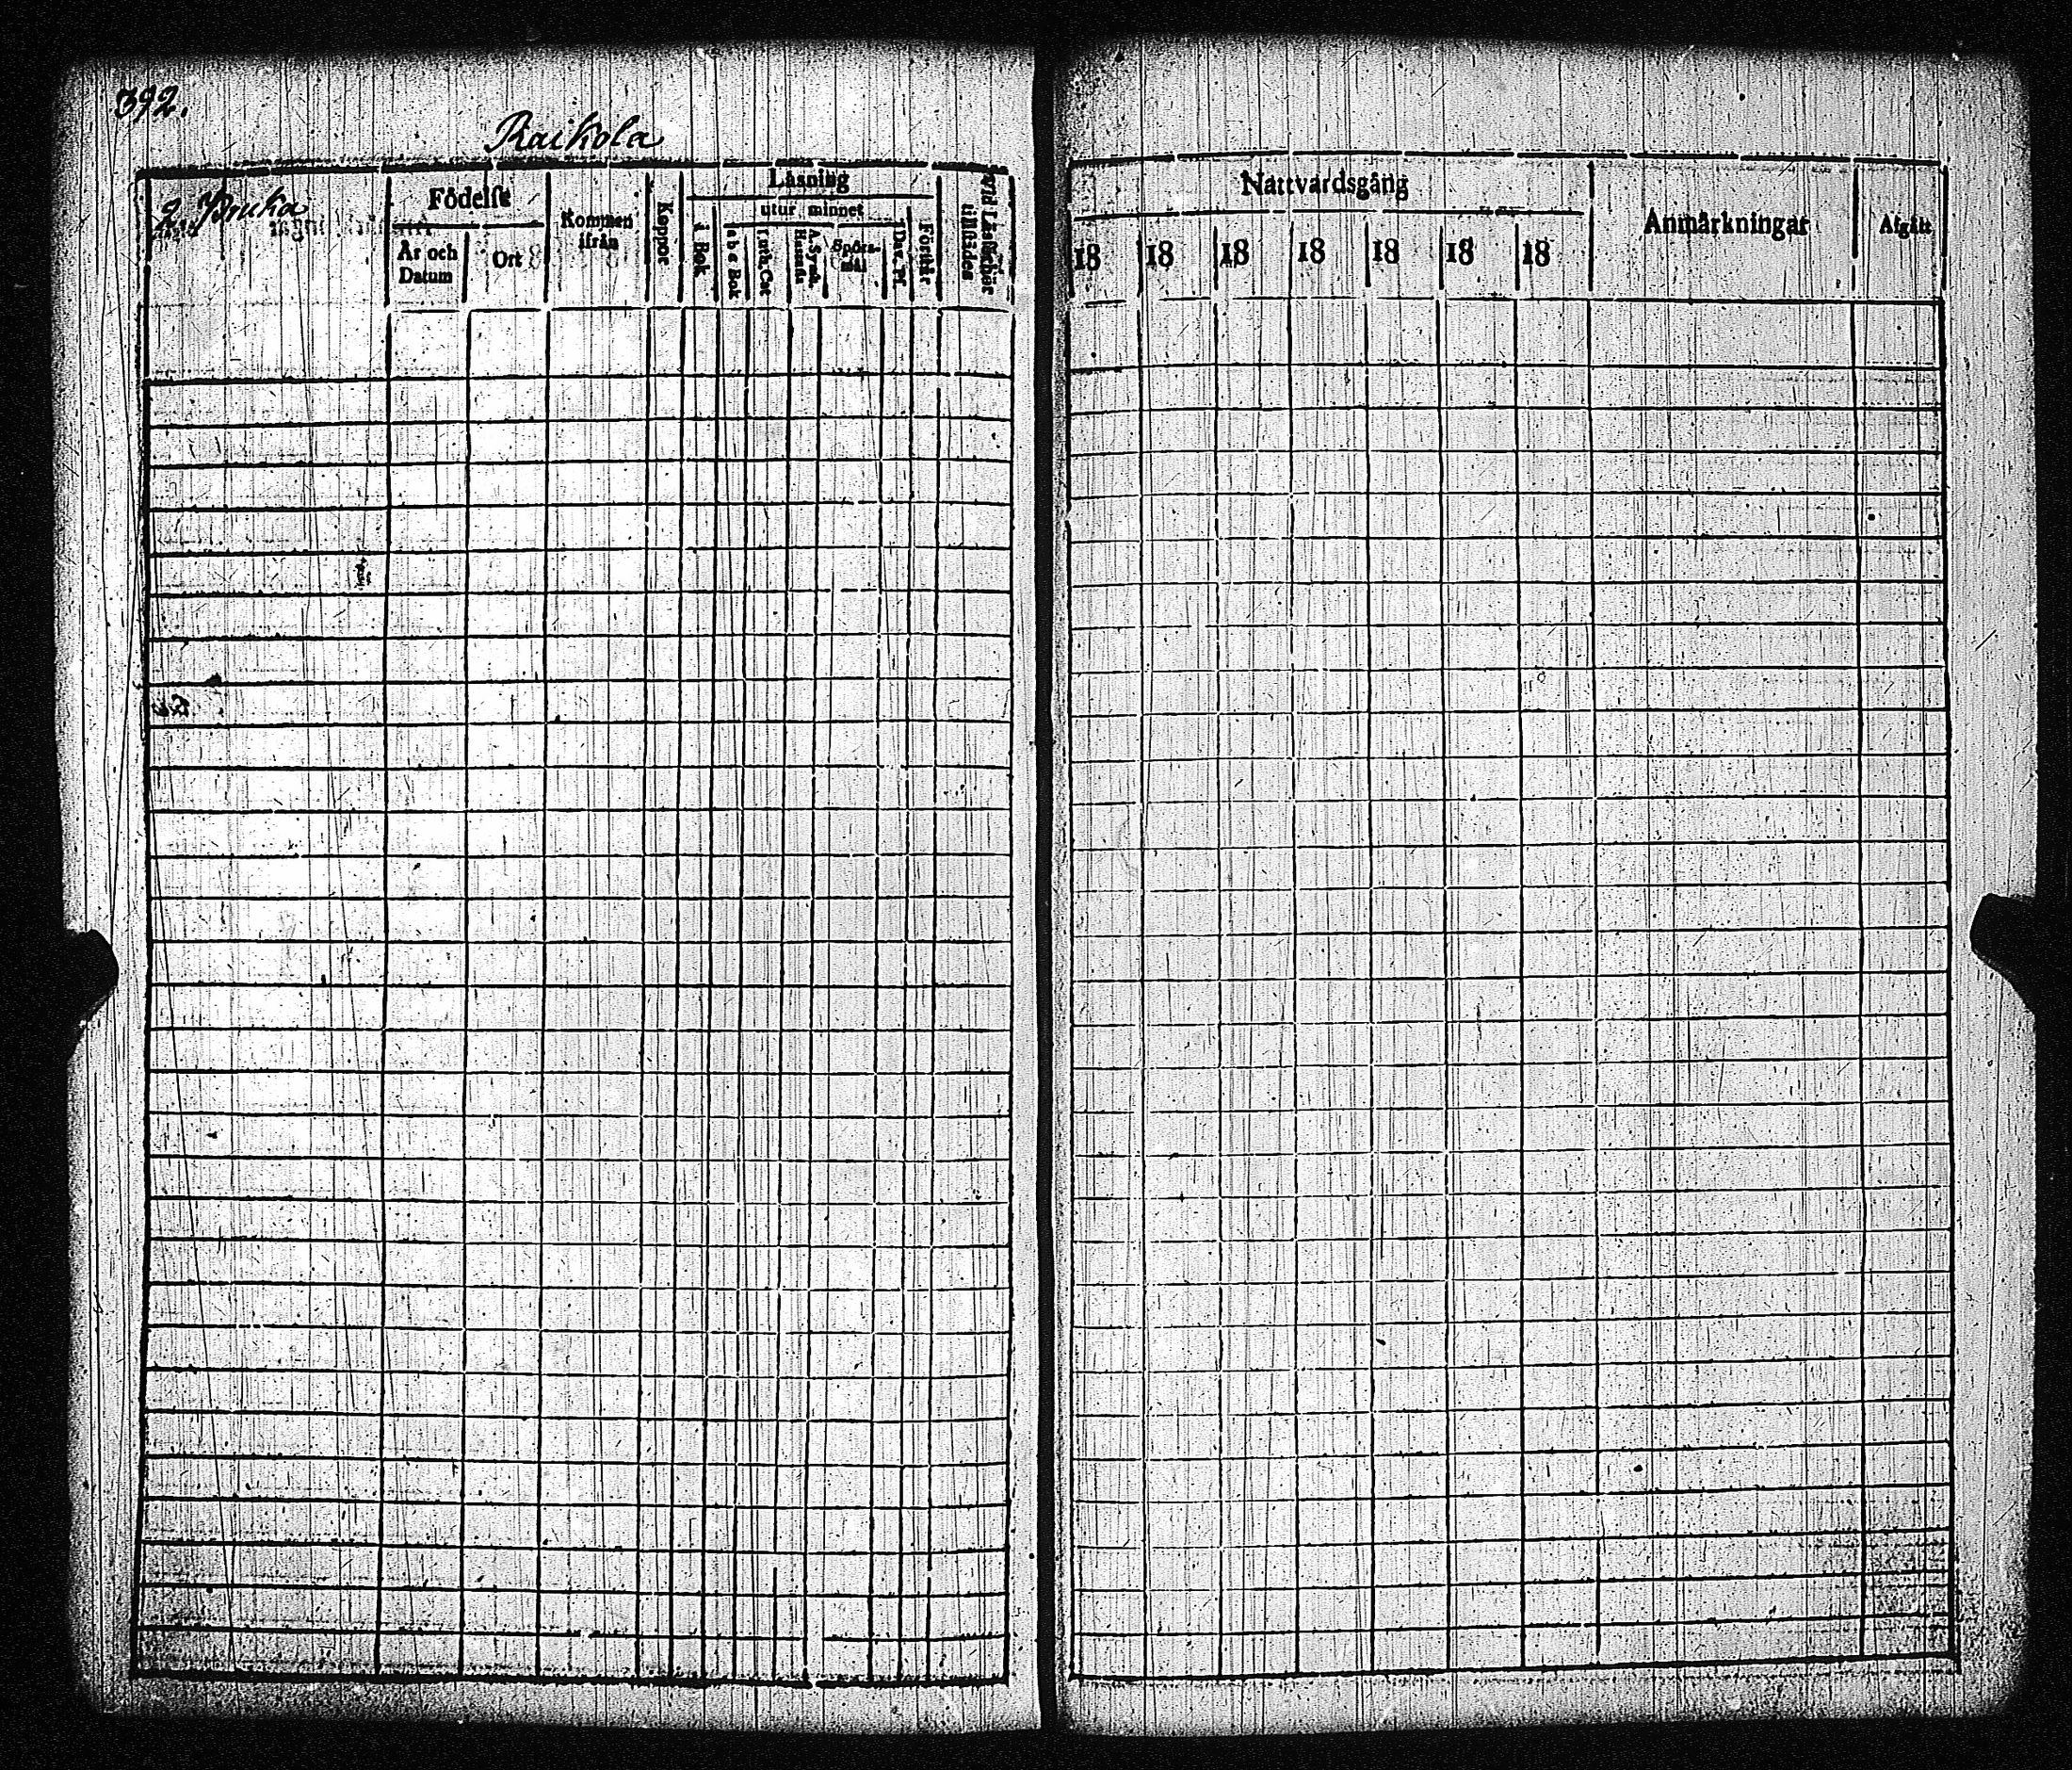 392.
Raikola
2. Bruka
Födelse
År och Datum
Ort
Kommen ifrån
Koppor
Läsning
i Bok
utur minnet
a b c Bok
Luth. Cat
A. Symb. Hustafla
Spörsmål
Dav. Ps.
Förstår
Vid Läsförhör tillstädes
Nattvardsgång
18 18 18 18 18 18 18
Anmärkningar
Afgått